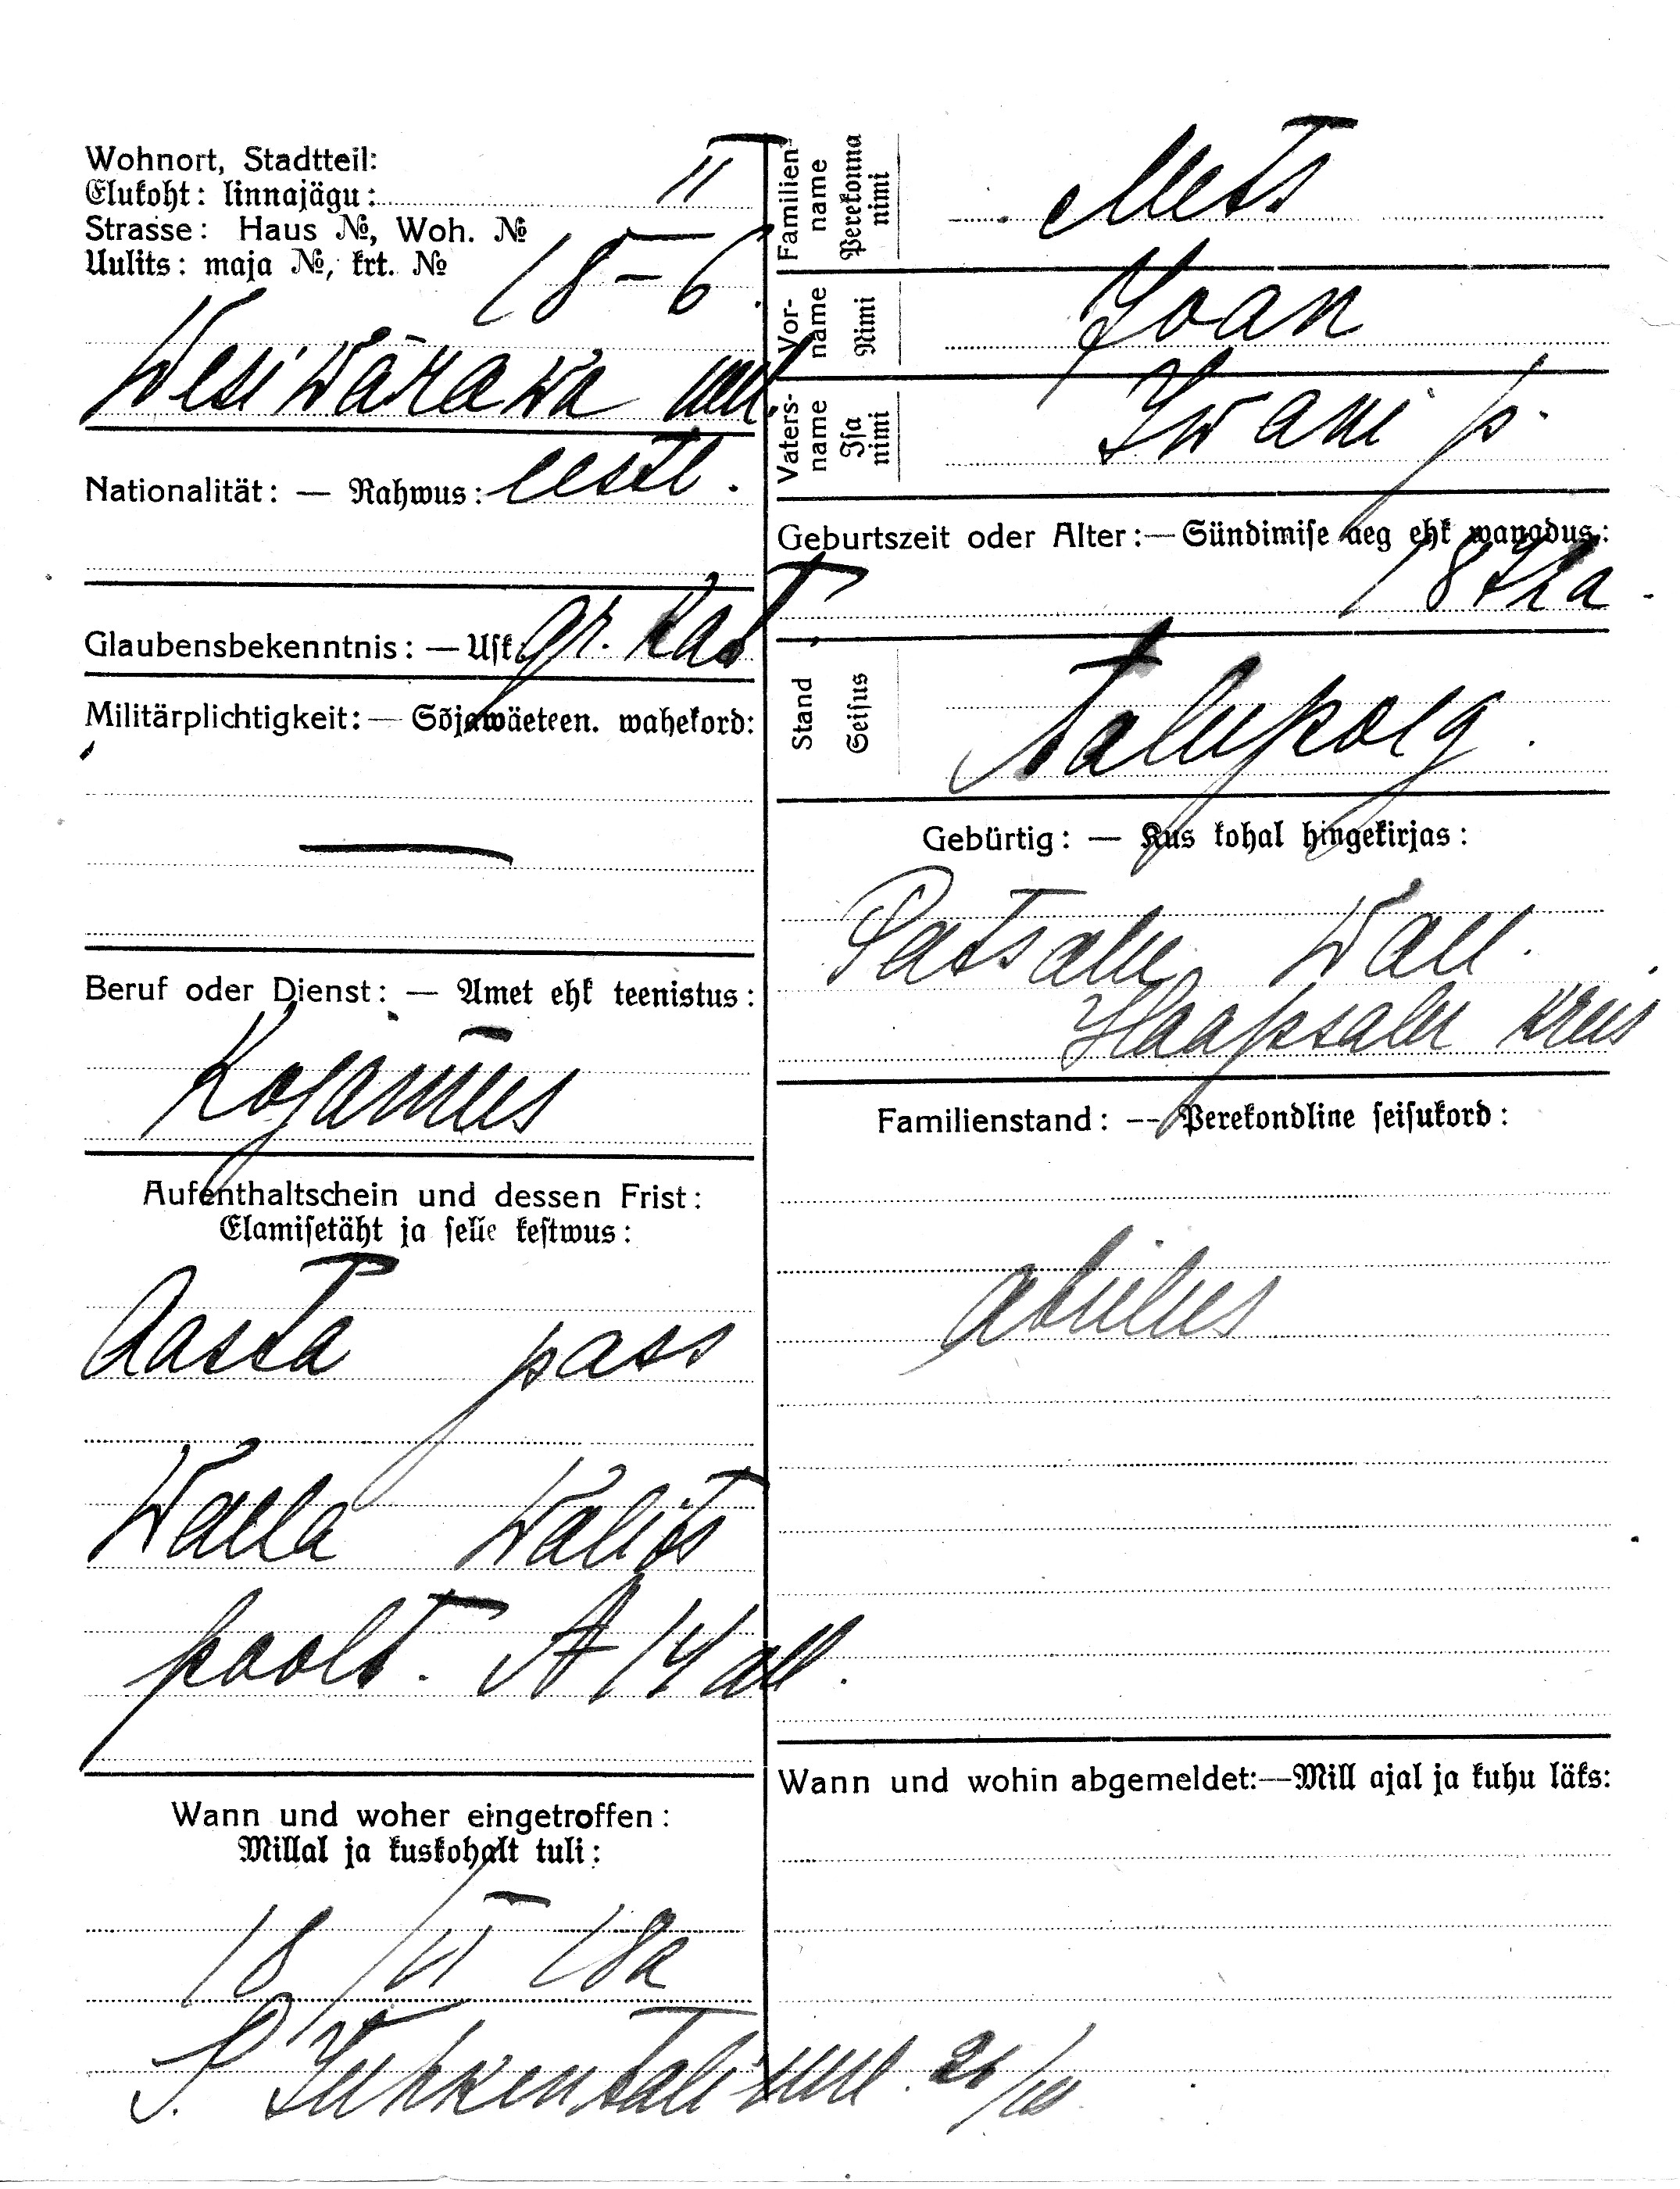 Wohnort, Stadtteil:
Elukoht: linnajägu: II
Strasse: Haus №, Woh. №
Uulits: maja №, krt. № 18-6.
Wesiwärawa uul.
Nationalität: — Rahwus: eestl.
Glaubensbekenntnis: — Usk gr. Kat.
Militärplichtigkeit: — Sõjawäeteen. wahekord:
—
Beruf oder Dienst: — Amet ehk teenistus:
Kojamees
Aufenthaltschein und dessen Frist:
Elamisetäht ja selle kestwus:
Aasta pass
Walla Walits
poolt. A 14 all.
Wann und woher eingetroffen:
Millal ja kuskohalt tuli:
18/VI 18a
S. Juhkentali uul. 26/
Familienname
Perekonna nimi
Mets
Vorname
Nimi
Joan
Vatersname
Isa nimi
Iwani p.
Geburtszeit oder Alter: — Sündimise aeg ehk wanadus:
1872a.
Stand
Seisus
talupoeg.
Gebürtig: — Kus kohal hingekirjas:
Patsalu Wall.
Haapsalu Kreis
Familienstand: — Perekondline seisukord:
abielus
Wann und wohin abgemeldet: — Mill ajal ja kuhu läks: